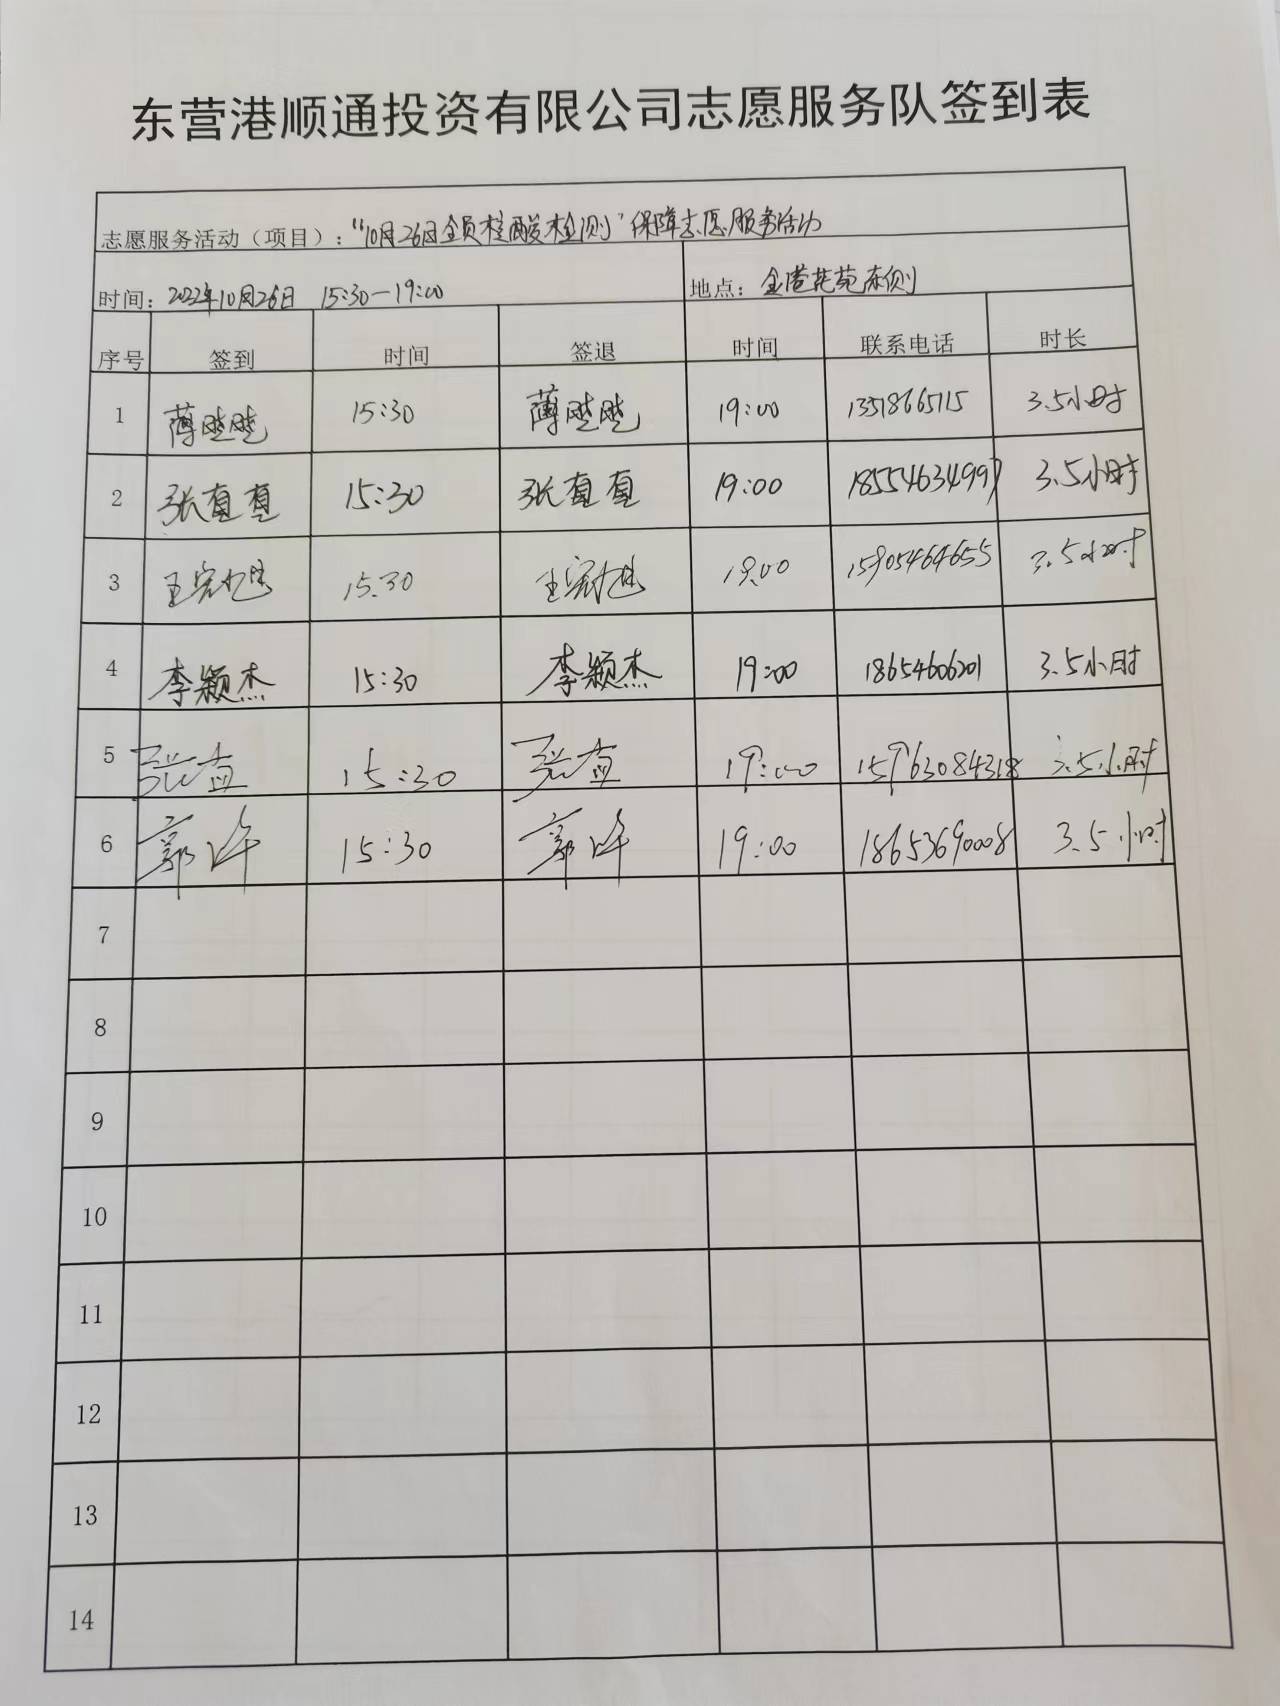 东营港顺通投资有限公司志愿服务队签到表
志愿服务活动（项目）：“10月26日全员核酸检测”保障志愿服务活动
时间：2022年10月26日 15:30—19:00 地点：金港花苑东侧
序号 签到 时间 签退 时间 联系电话 时长
1 薄 15:30 薄 19:00 13518665115 3.5小时
2 张直直 15:30 张直直 19:00 18554634997 3.5小时
3 王 15:30 王 19:00 15905464655 3.5小时
4 李颖杰 15:30 李颖杰 19:00 18654606201 3.5小时
5 张 15:30 张 19:00 15763084318 3.5小时
6 郭 15:30 郭 19:00 18653690008 3.5小时
7
8
9
10
11
12
13
14